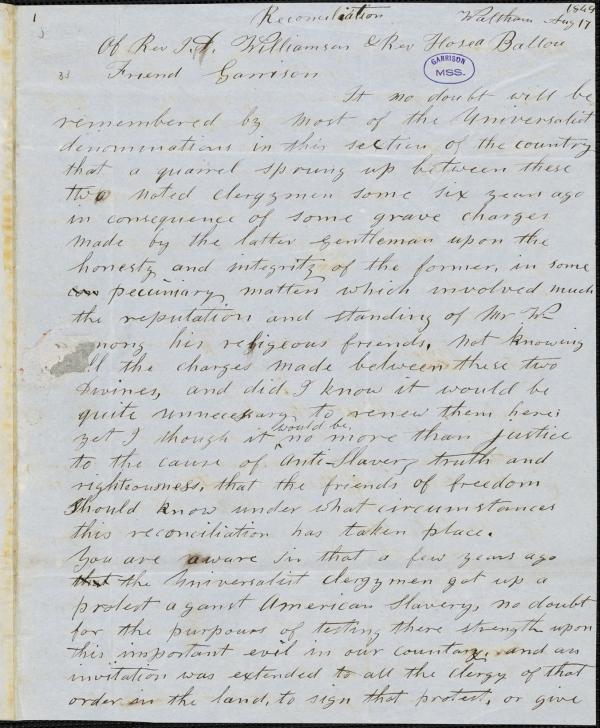 1
Reconciliation Waltham Aug 17
1849
Of Rev I.D. Williamson & Rev Hosea Ballou
Friend Garrison
GARRISON
MSS.
It no doubt will be
remembered by most of the Universalist
denominations in this section of the country
that a quarrel sprung up between these
two noted clergymen some six years ago
in consequence of some grave charges
made by the latter gentleman upon the
honesty and integrity of the former, in some
pecuniary matters which involved much
the reputation and standing of Mr Wm
mong his religeous friends. Not knowing
ll the charges made between these two
Divines, and did I know it would be
quite unnecessary to renew them here;
yet I though it would be no more than justice
to the cause of Anti-Slavery truth and
righteousness, that the friends of freedom
should know under what circumstances
this reconciliation has taken place.
You are aware Sir that a few years ago
that the Universalist Clergymen got up a
protest aganst American Slavery, no doubt
for the purpours of testing there strength upon
this important evil in our countary, and an
invitation was extended to all the Clergy of that
order in the land, to sign that protest, or give